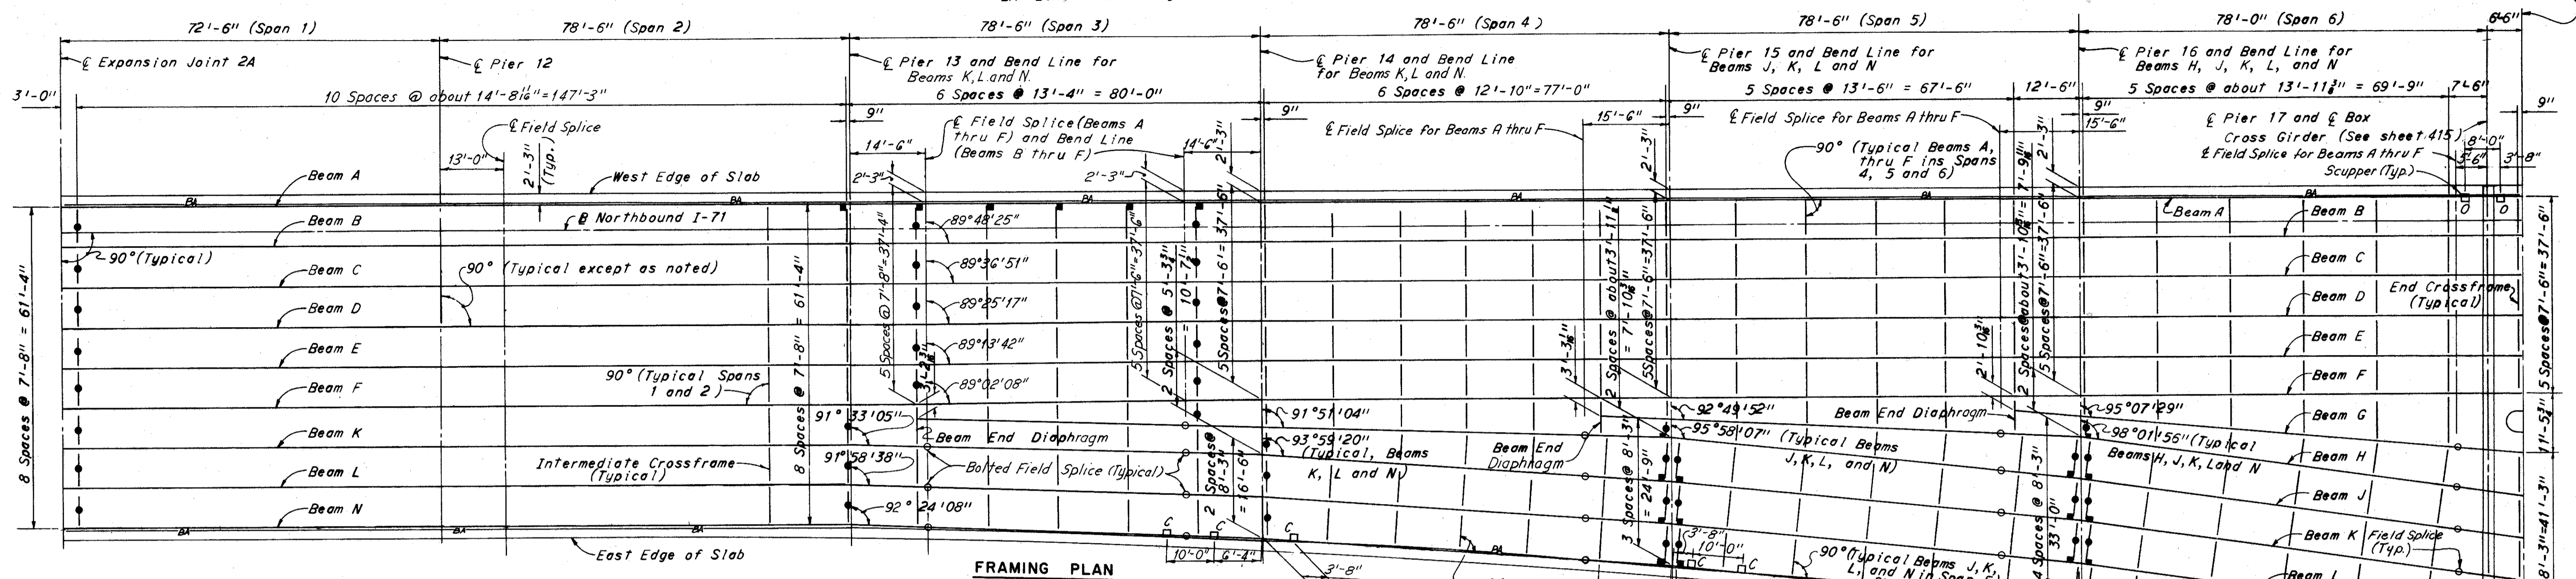 72'-6" (Span 1)
78'-6" (Span 2)
78'-6" (Span 3)
78'-6" (Span 4)
78'-6" (Span 5)
78'-0" (Span 6)
6'-6"
℄ Expansion Joint 2A
℄ Pier 12
℄ Pier 13 and Bend Line for
Beams K, L and N.
℄ Pier 14 and Bend Line
for Beams K, L and N.
℄ Pier 15 and Bend Line for
Beams J, K, L and N
℄ Pier 16 and Bend Line for
Beams H, J, K, L, and N
3'-0"
10 Spaces @ about 14'-8 11/16"=147'-3"
6 Spaces @ 13'-4" = 80'-0"
6 Spaces @ 12'-10"=77'-0"
5 Spaces @ 13'-6" = 67'-6"
12'-6"
5 Spaces @ about 13'-11 3/8" = 69'-9"
7'-6"
9"
9"
9"
9"
9"
℄ Field Splice
13'-0"
2'-3"
(Typ.)
14'-6"
℄ Field Splice (Beams A
thru F) and Bend Line
(Beams B thru F)
14'-6"
2'-3"
℄ Field Splice for Beams A thru F
15'-6"
℄ Field Splice for Beams A thru F
15'-6"
℄ Pier 17 and ℄ Box
Cross Girder (See sheet 415)
8'-0"
℄ Field Splice for Beams A thru F
3'-8"
Scupper (Typ.)
90° (Typical Beams A,
thru F ins Spans
4, 5 and 6)
2'-3"
2'-3"
2'-3"
2'-3"
Beam A
West Edge of Slab
BA
BA
BA
BA
BA
BA
Beam A
Beam B
℄ Northbound I-71
89°48'25"
Beam B
90°(Typical)
Beam C
90° (Typical except as noted)
89°36'51"
Beam C
Beam D
89°25'17"
Beam D
End Crossframe
(Typical)
Beam E
89°13'42"
Beam E
Beam F
90° (Typical Spans
1 and 2)
89°02'08"
Beam F
8 Spaces @ 7'-8" = 61'-4"
8 Spaces @ 7'-8" = 61'-4"
5 Spaces @ 7'-8" = 37'-4"
5 Spaces @ 7'-6"=37'-6"
2 Spaces @ 5'-3 3/4"
= 10'-7 1/2"
5 Spaces @ 7'-6"= 37'-6"
3'-3 3/16"
2 Spaces @ about 3'-11 1/2"
= 7'-10 3/16"
5 Spaces @ 7'-6"=37'-6"
2'-10 3/16"
5 Spaces @ 7'-6"=37'-6"
5 Spaces @ 7'-6"= 37'-6"
11'-5 3/4"
91° 33'05"
Beam End Diaphragm
91°51'04"
92°49'52"
Beam End Diaphragm
95°07'29"
Beam G
Beam K
91°58'38"
Bolted Field Splice (Typical)
93°59'20"
(Typical, Beams
K, L and N)
Beam End
Diaphragm
95°58'07" (Typical Beams
J, K, L, and N)
98°01'56" (Typical
Beams H, J, K, L and N
Beam H
Beam L
Intermediate Crossframe
(Typical)
2 Spaces @
8'-3"
= 16'-6"
3 Spaces @ 8'-3"
= 24'-9"
4 Spaces @ 8'-3"
33'-0"
Beam J
Beam N
92° 24'08"
Beam K
Field Splice
(Typ.)
BA
BA
BA
BA
C
C
C
C
C
O
O
East Edge of Slab
10'-0"
6'-4"
3'-8"
3'-8"
10'-0"
90°(Typical Beams J, K,
L, and N in Span
Beam L
8'-3"=41'-3"
FRAMING PLAN